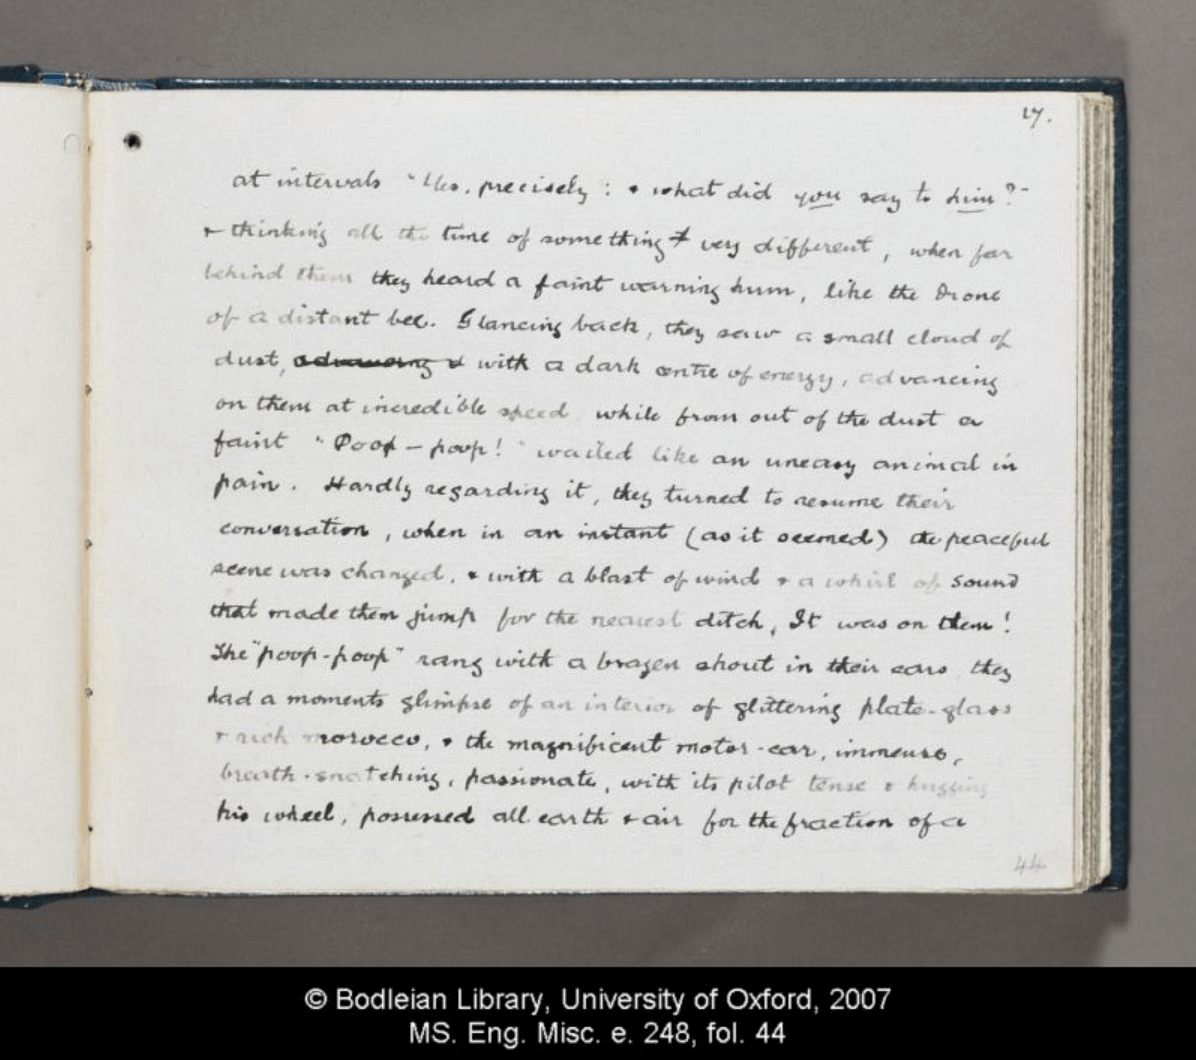 17.
at intervals "Yes, precisely: & what did you say to him?"
& thinking all the time of something very different, when far
behind them they heard a faint warning hum, like the drone
of a distant bee. Glancing back, they saw a small cloud of
dust, advancing & with a dark centre of energy, advancing
on them at incredible speed, while from out of the dust a
faint "Poop-poop!" wailed like an uneasy animal in
pain. Hardly regarding it, they turned to resume their
conversation, when in an instant (as it seemed) the peaceful
scene was changed, & with a blast of wind & a whirl of sound
that made them jump for the nearest ditch, It was on them!
The "poop-poop" rang with a brazen shout in their ears, they
had a moments glimpse of an interior of glittering plate-glass
& rich morocco, & the magnificent motor-car, immense,
breath-snatching, passionate, with its pilot tense & hugging
his wheel, possessed all earth & air for the fraction of a
44
© Bodleian Library, University of Oxford, 2007
MS. Eng. Misc. e. 248, fol. 44